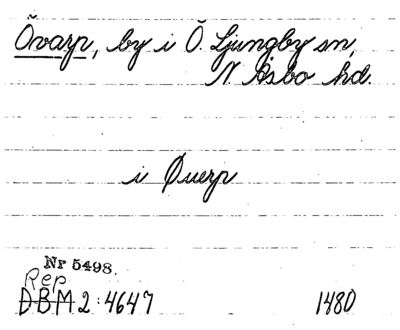 Övarp, by i Ö. Ljungby sn,
N Åsbo hd.
i Øuerp
Nr 5498.
Rep
DBM 2:4647 1480